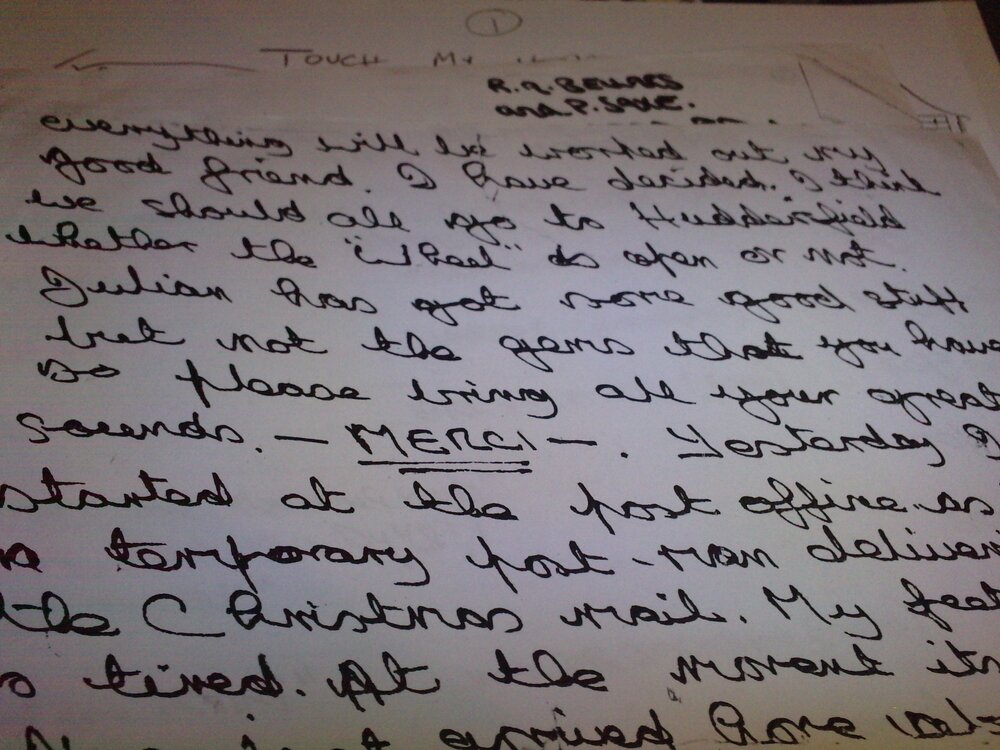 1
TOUCH MY
and P.
everything will be worked out my
good friend. I have decided. I think
we should all go to Hudderfield
whether the "Wheel" is open or not.
Julian has got some good stuff
but not the gems that you have
so please bring all your great
sounds. — MERCI —. Yesterday I
started at the post office as
a temporary post-man deliver
the Christmas mail. My feet
so tired. At the moment its
just arrived home